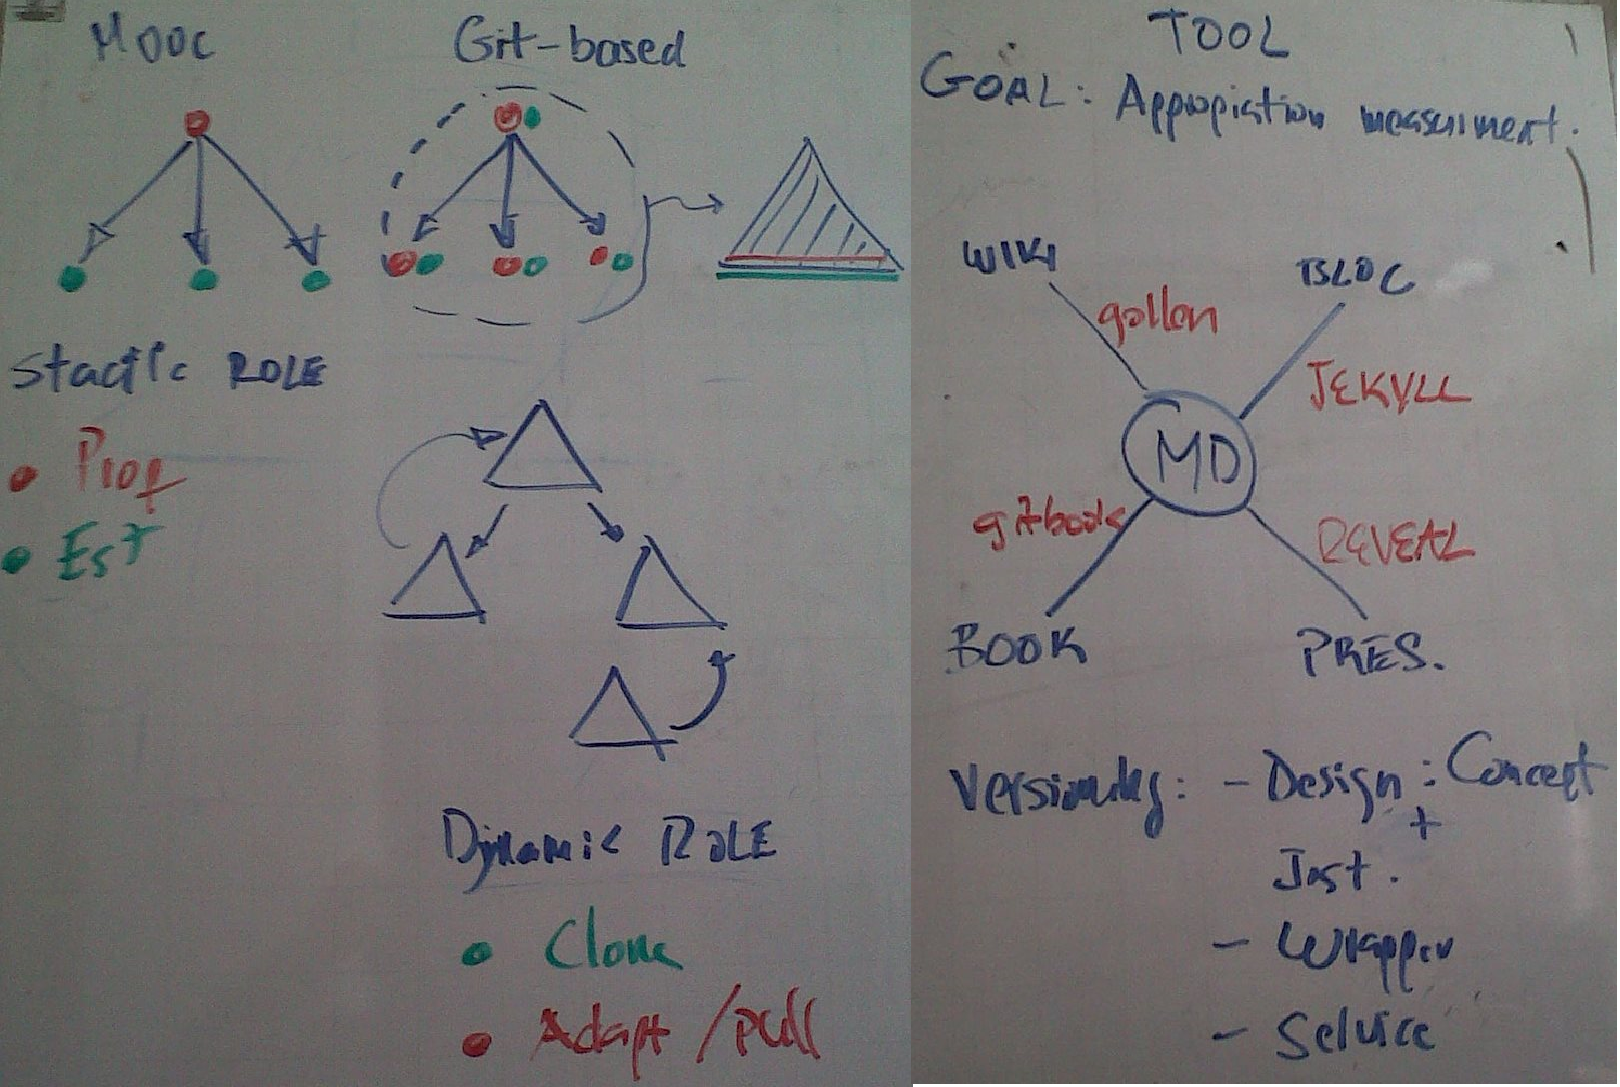 MOOC
Git-based
Stactic ROLE
Prof
Est
Dynamic ROLE
Clone
Adapt / Pull
TOOL
GOAL: Appropiation measurment.
WIKI
BLOG
gollon
JEKYLL
MD
gitbook
REVEAL
BOOK
PRES.
Versioning: - Design : Concept
+
Inst.
- Wrapper
- Service